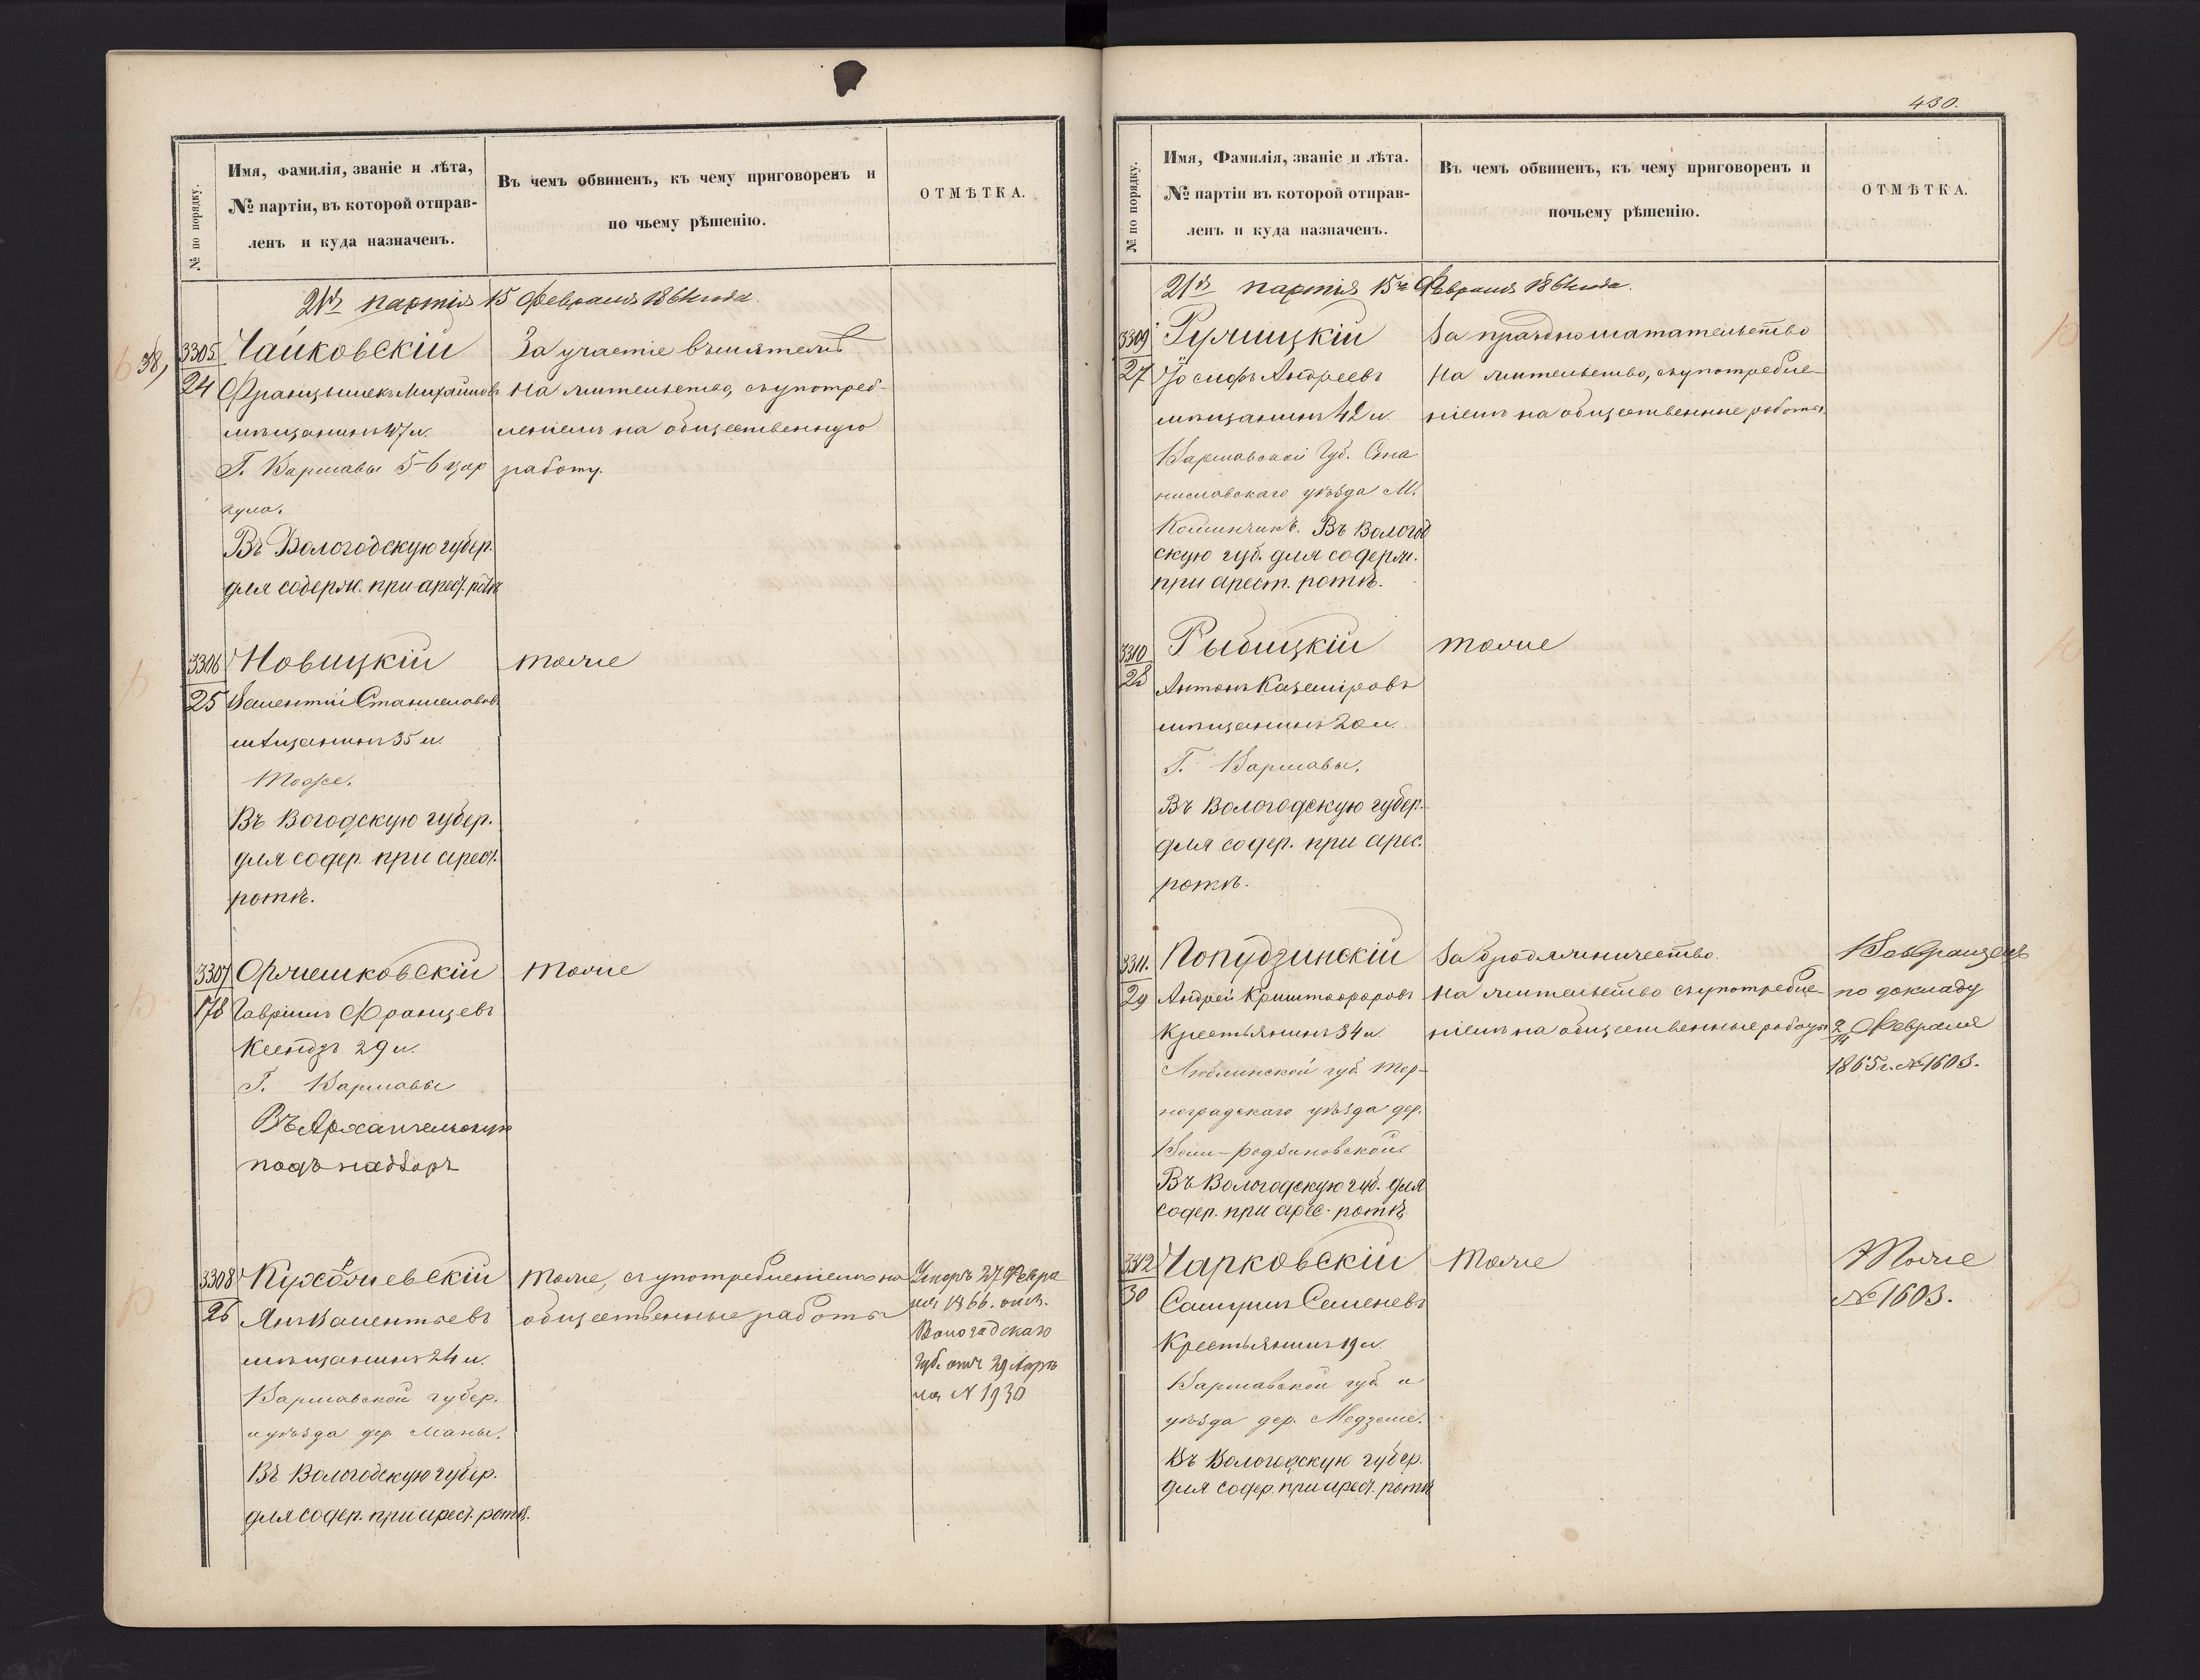 № по порядку.
Имя, фамилія, званіе и лѣта,
№ партіи, въ которой отправ-
ленъ и куда назначенъ.
Въ чемъ обвиненъ, къ чему приговоренъ и
по чьему рѣшенію.
ОТМѢТКА.
21я партія 15 Февраля 1864 года.
38,
3305
24
Чайковскій
Францышекъ Михайловъ
мѣщанинъ 47 л.
Г. Варшавы 5-6 цир
кула.
Въ Вологодскую губер.
для содерж. при арест. ротѣ
За участіе въ мятежѣ
На жительство, съ употреб-
леніемъ на общественную
работу.
3306
25
Новицкій
Валентій Станиславовъ
мѣщанинъ 35 л.
Тоже.
Въ Вогодскую губер.
для содер. при арест.
ротѣ.
тоже
3307
178
Оржешковскій
Гавріилъ Францевъ
Ксендзъ 29 л.
Г. Варшавы
Въ Архангельскую
подъ надзоръ
тоже
3308
26
Янъ Валентьевъ
мѣщанинъ 24 л.
Варшавской губер.
и уѣзда дер. Маны.
Въ Вологодскую губер.
для содер. при арест. ротѣ.
тоже, съ употребленіемъ на
общественные работы
Умеръ 27 Февра
ля 1866. отн.
Вологодскаго
Губ. отъ 29 Апрѣ
ля N 1930
430.
№ по порядку.
Имя, Фамилія, званіе и лѣта.
№ партіи въ которой отправ-
ленъ и куда назначенъ.
Въ чемъ обвиненъ, къ чему приговоренъ и
почьему рѣшенію.
ОТМѢТКА.
21я партія 15го Февраля 1864 года.
3309
27
Ружицкій
Іосифъ Андреевъ
мѣщанинъ 42 л.
Варшавской Губ. Ста
ниславскаго уѣзда М.
Въ Вологод
скую губ. для содерж.
при арест. ротѣ.
За праздношатательство
На жительство, съ употребле-
ніемъ на общественные работы
3310
28
Рыбицкій
Антонъ Каземіровъ
мѣщанинъ 20 л.
Г. Варшавы.
Въ Вологодскую губер.
для содер. при арес.
ротѣ.
тоже
3311.
29
Попудзинскій
Андрей Криштофоровъ
Крестьянинъ 34 л.
Люблинской губ. Тор-
ноградскаго уѣзда дер.
Въ Вологодскую губ. для
содер. при арес. ротѣ
За бродяжничество.
На жительство съ употребле-
ніемъ на общественные работы
по докладу
2/14 Февраля
1865 г. № 1603.
3312
30
Чарковскій
Семеневъ
Крестьянинъ 19 л.
Варшавской губ. и
уѣзда дер. Медзеше.
Въ Вологодскую губер.
для содер. при арест. ротѣ
тоже
Тоже
№ 1603.